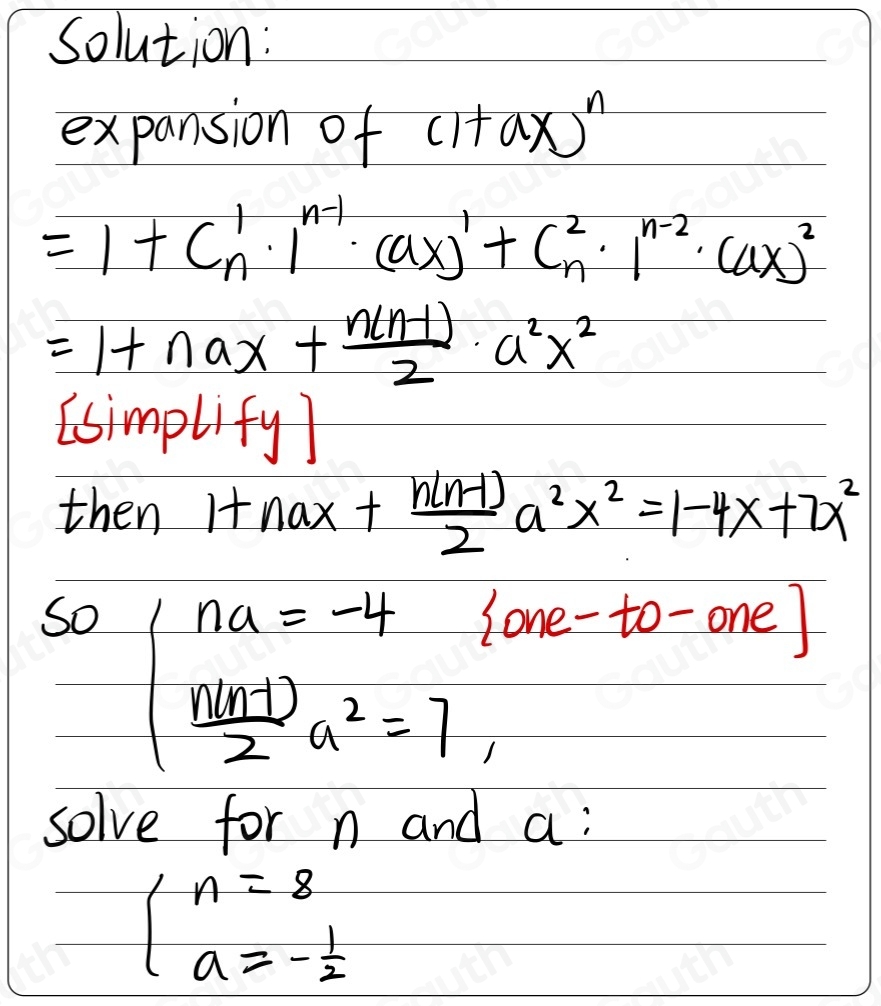 Solution:
expansion of (1+ax)^n
= 1 + C_n^1 · 1^{n-1} · (ax)^1 + C_n^2 · 1^{n-2} · (ax)^2
= 1 + nax + \frac{n(n-1)}{2} · a^2x^2
[simplify]
then 1+nax + \frac{n(n-1)}{2} a^2x^2 = 1-4x+7x^2
so { na = -4 {one-to-one]
\frac{n(n-1)}{2} a^2 = 7,
solve for n and a:
{ n = 8
a = -\frac{1}{2}
Gauth